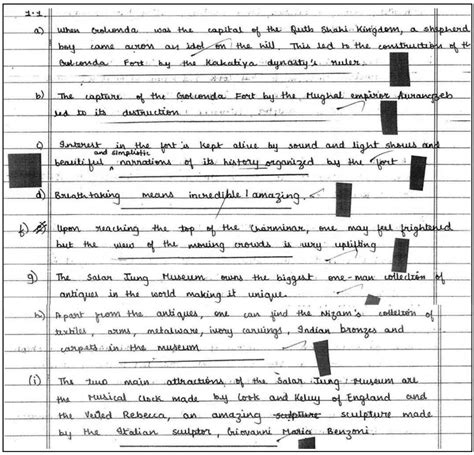 1.1.
a) When Golconda was the capital of the Qutb Shahi Kingdom, a shepherd
boy came across an idol on the hill. This led to the construction of the
Golconda Fort by the Kakatiya dynasty's ruler
b) The capture of the Golconda Fort by the Mughal emperor Aurangzeb
led to its destruction
c) Interest in the fort is kept alive by sound and light shows and
beautiful and simplistic narrations of its history organized by the fort
d) Breathtaking means incredible / amazing.
f) Upon reaching the top of the Charminar, one may feel frightened
but the view of the moving crowds is very uplifting
g) The Salar Jung Museum owns the biggest one-man collection of
antiques in the world making it unique.
h) Apart from the antiques, one can find the Nizam's collection of
textiles, arms, metalware, ivory carvings, Indian bronzes and
carpets in the museum
(i) The two main attractions of the Salar Jung Museum are
the Musical Clock made by Cook and Kelvy of England and
the Veiled Rebecca, an amazing sculpture sculpture made
by the Italian sculptor, Giovanni Maria Benzoni